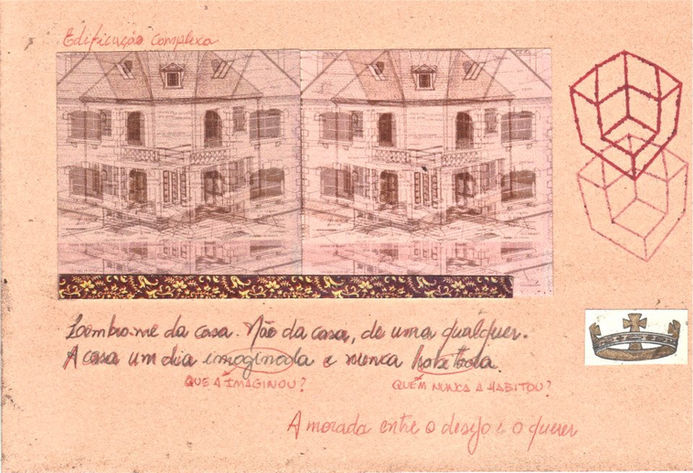 Edificação complexa
Lembro-me da casa. Não da casa, de uma qualquer.
A casa um dia imaginada e nunca habitada.
QUE A IMAGINOU? QUEM NUNCA A HABITOU?
A morada entre o desejo e o querer